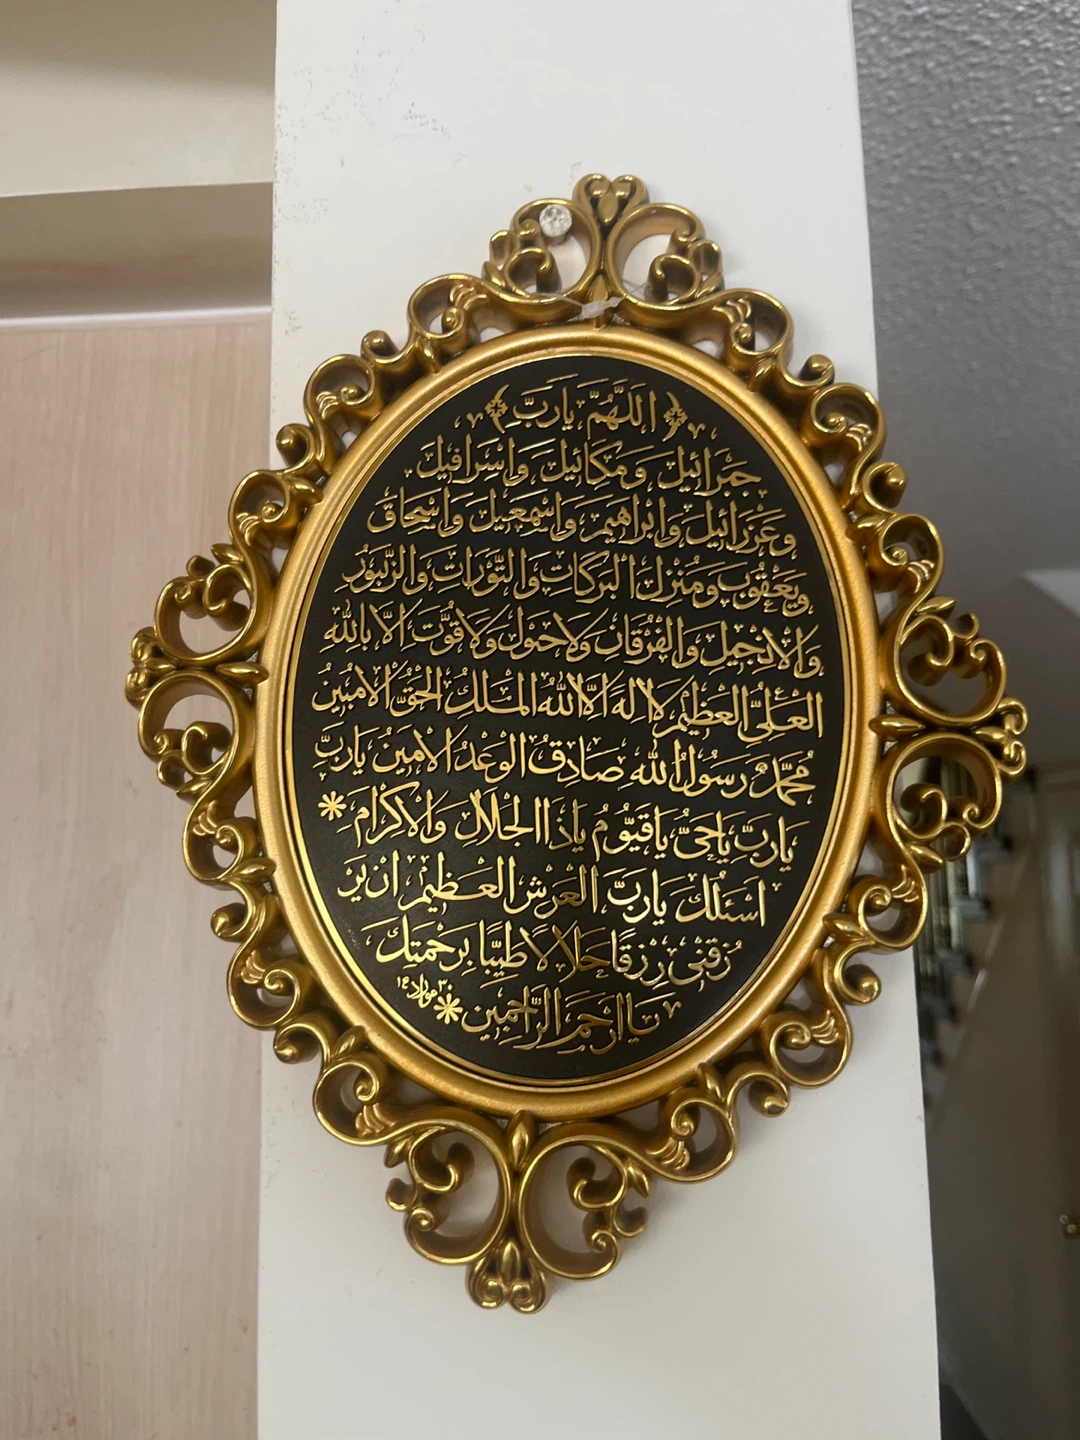 ﴿ اَللَّهُمَّ يَارَبَّ ﴾
جَبْرَائِيلَ وَمِكَائِيلَ وَاِسْرَافِيلَ
وَعَزْرَائِيلَ وَاِبْرَاهِيمَ وَاِسْمَعِيلَ وَاِسْحَاقَ
وَيَعْقُوبَ وَمُنْزِلَ الْبَرَكَاتِ وَالتَّوْرَاتِ وَالزَّبُورِ
وَالْاِنْجِيلِ وَالْفُرْقَانِ وَلَاحَوْلَ وَلَاقُوَّتَ اِلَّا بِاللهِ
الْعَلِيِّ الْعَظِيمِ لَا اِلَهَ اِلَّا اللهُ الْمَلِكُ الْحَقُّ الْمُبِينُ
مُحَمَّدٌ رَسُولُ اللهِ صَادِقُ الْوَعْدُ الْاَمِينَ يَارَبِّ
يَارَبِّ يَاحَىُّ يَاقَيُّومُ يَاذَاالْجَلَالِ وَالْاِكْرَامِ *
اَسْئَلُكَ يَارَبَّ الْعَرْشِ الْعَظِيمِ اَنْ يَرْ
زُقَنِى رِزْقًا حَلَالًا طَيِّبًا بِرَحْمَتِكَ
يَااَرْحَمَ الرَّاحِمِينَ *